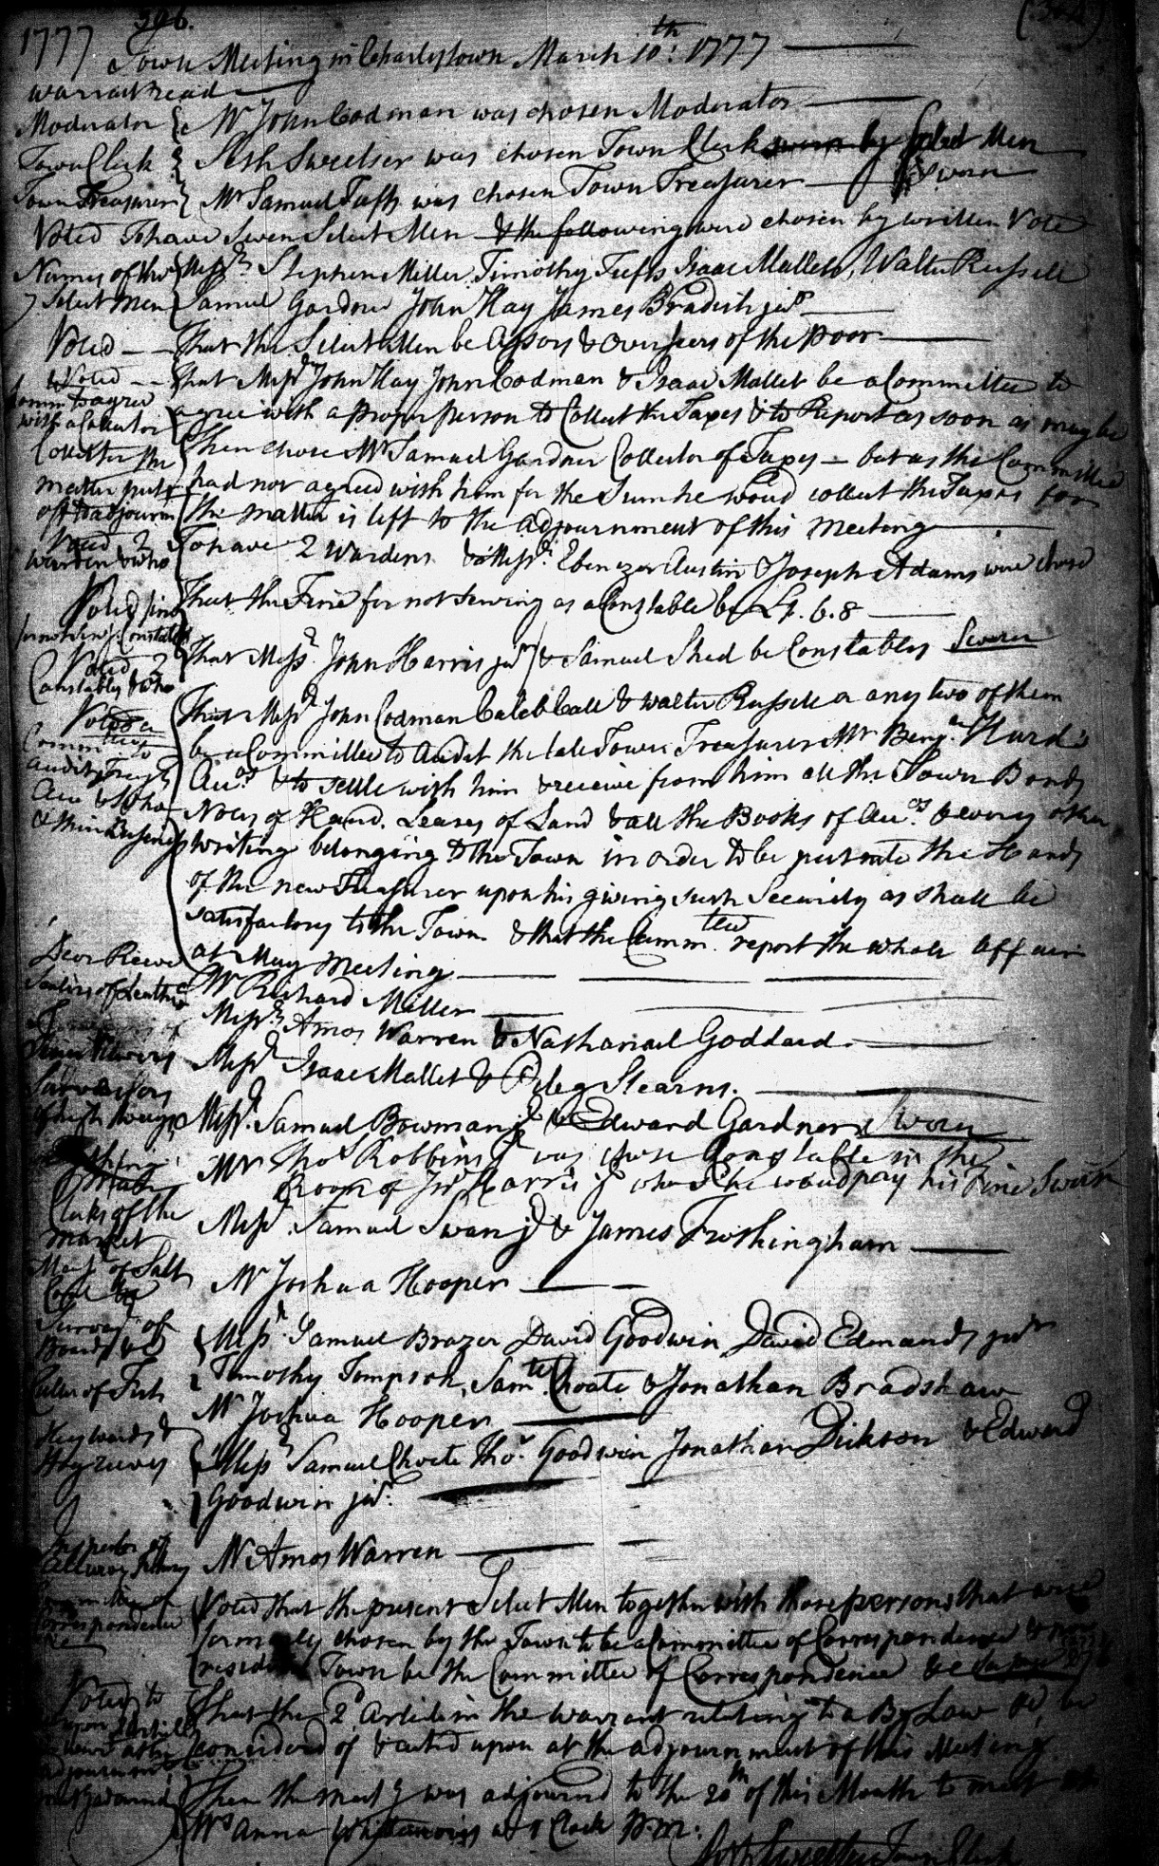 1777 396.
Town Meeting in Charlestown March 10th: 1777
Warrant Read
Moderator { Mr John Codman was chosen Moderator
Town Clerk { Seth Sweetser was chosen Town Clerk sworn by Select Men
Town Treasurer } Mr Samuel Tufts was chosen Town Treasurer Sworn
Voted To have Seven Select Men & the following were chosen by written Vote
Names of the { Messrs Stephen Miller Timothy Tufts Isaac Mallett, Walter Russell
7 Select men { Samuel Gardner John Hay James Bradish junr
Voted That the Select Men be Assors & Overseers of the Poor
& Voted That Messrs John Hay John Codman & Isaac Mallet be a Committee to
Comm to agree with a Collector { agree with a proper person to Collect the Taxes & to Report as soon as may be
Collector the { Then chose Mr Samuel Gardner Collector of Taxes – but as the Committee
matter put { had not agreed with him for the Sum he woud collect the Taxes for
off to adjournm { the matter is left to the adjournment of this meeting
Voted 2 Wardens & who { To have 2 Wardens & Messrs. Ebenezer Austin & Joseph Adams were chose
Voted fine for not serv: Constable { That the Fine for not serving as a Constable be L4. 6. 8
Voted 2 Constables & who { That Messrs. John Harris junr & Samuel Shed be Constables Sworn
Voted a { That Messrs John Codman Caleb Call & Walter Russell or any two of them
Comm to { be a Committee to Audit the late Town Treasurer Mr Benja. Hurd's
audit { Accts & to settle with him & receive from him all the Town Bonds
Notes of Hand. Leases of Land & all the Books of Accts & every other
& their Business writing belonging to the Town in order to be put into the Hands
of the new Treasurer upon his giving such Security as shall be
satisfactory to the Town & that the Commtee report the whole Affair
at May Meeting
Deer Reeve Mr Richard Miller
Sealers of Leather Messrs Amos Warren & Nathaniel Goddard.
Messrs Isaac Mallet & Peleg Stearns.
Messrs. Samuel Bowman jr & Edward Gardner Sworn
Mr Thos Robbins jr was chose Constable in the
Room of Jno Harris jr who woud pay his Fine Sworn
Clerks of the Market Messrs. Samuel Swan jr & James Frothingham
Meas of Salt Mr Joshua Hooper
Survey of Boards &c { Messrs. Samuel Brazer David Goodwin David Edmands junr
Timothy Tompson, Samll Choate & Jonathan Bradshaw
Culler of Fish Mr Joshua Hooper
Heywards & Hogreeves { Messrs Samuel Choate Thos. Goodwin Jonathan Dickson & Edward
Goodwin junr.
Mr Amos Warren
Correspondence { Voted that the present Select Men together with those persons that were
formerly chosen by the Town to be a Committee of Correspondence & now
Town be the Committee of Correspondence &c
Voted to { That the 2d Article in the Warrant relating to a By Law &c be
considered of & acted upon at the adjournment of this Meeting.
Then the meetg was adjournd to the 20th of this Month to meet
Mrs Anna at 1 Clock P.M.
Seth Sweetser Town Clerk